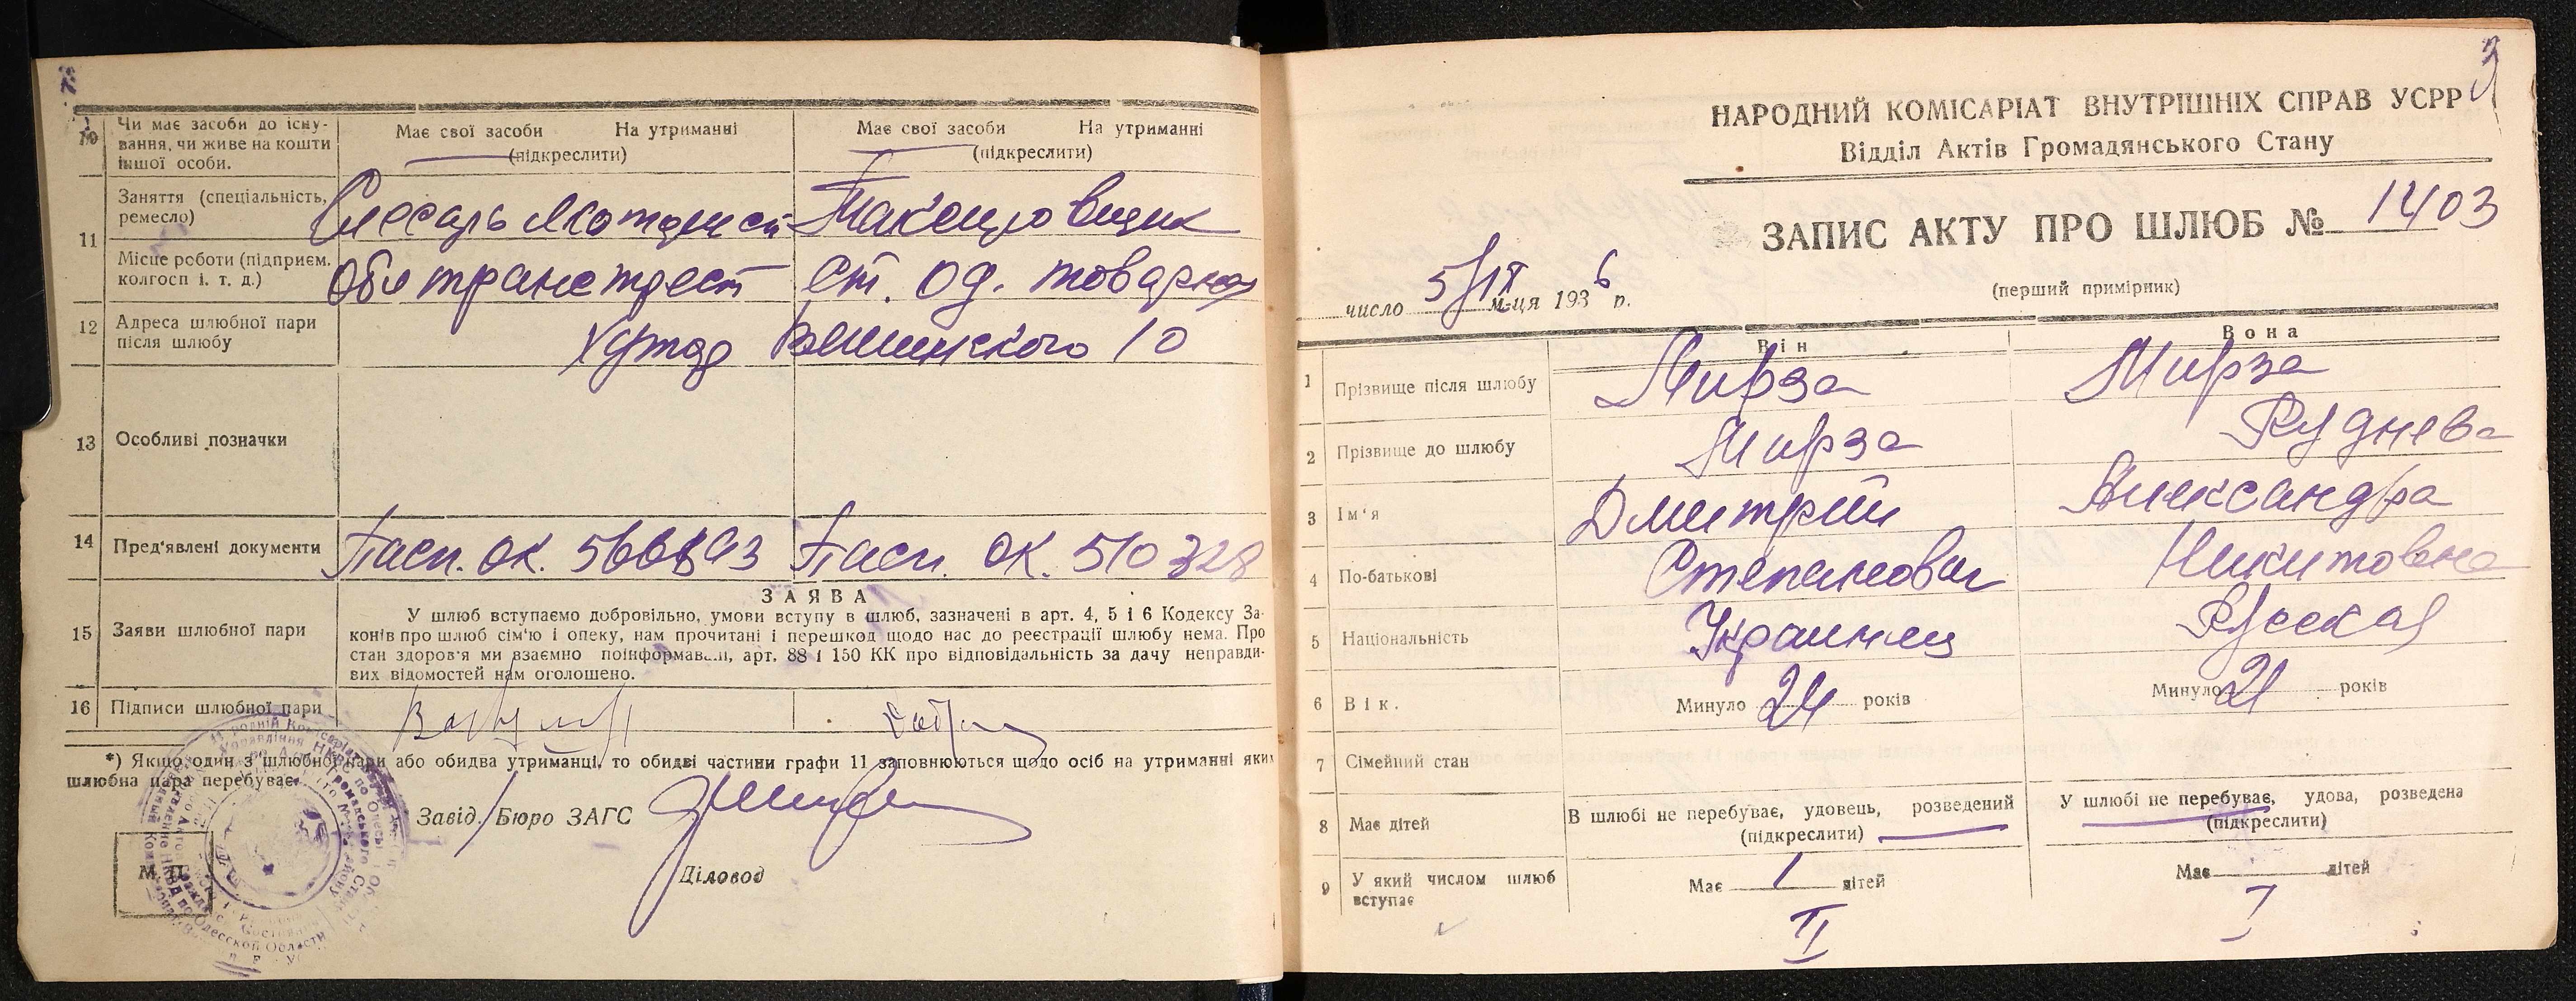 10 Чи має засоби до існу-
вання, чи живе на кошти
іншої особи.
Має свої засоби На утриманні
(підкреслити)
Має свої засоби На утриманні
(підкреслити)
11 Заняття (спеціальність,
ремесло)
Слесарь
Таксировщик
Місце роботи (підприєм.
колгосп і. т. д.)
Облтранстрест
Ст. Од. товарная
12 Адреса шлюбної пари
після шлюбу
Хутор 10
13 Особливі позначки
14 Пред'явлені документи
Пасп. ОК.
Пасп. ОК. 510328
15 Заяви шлюбної пари
ЗАЯВА
У шлюб вступаємо добровільно, умови вступу в шлюб, зазначені в арт. 4, 5 і 6 Кодексу За-
конів про шлюб сім'ю і опеку, нам прочитані і перешкод щодо нас до реєстрації шлюбу нема. Про
стан здоров'я ми взаємно поінформавали, арт. 88 і 150 КК про відповідальність за дачу неправди-
вих відомостей нам оголошено.
16 Підписи шлюбної пари
*) Якщо один з шлюбної пари або обидва утриманці, то обидві частини графи 11 заповнюються щодо осіб на утриманні яких
шлюбна пара перебуває.
Завід. Бюро ЗАГС
Діловод
М. П.
НАРОДНИЙ КОМІСАРІАТ ВНУТРІШНІХ СПРАВ УСРР
Відділ Актів Громадянського Стану
ЗАПИС АКТУ ПРО ШЛЮБ № 1403
(перший примірник)
число 5/IX м-ця 1936 р.
Він
Вона
1 Прізвище після шлюбу
Мирза
Мирза
2 Прізвище до шлюбу
Мирза
Руднева
3 Ім'я
Дмитрий
Александра
4 По-батькові
Степанович
Никитовна
5 Національність
Украинец
Русская
6 Вік.
Минуло 24 років
Минуло 21 років
7 Сімейний стан
В шлюбі не перебуває, удовець, розведений
(підкреслити)
У шлюбі не перебуває, удова, розведена
(підкреслити)
8 Має дітей
Має 1 дітей
Має дітей
9 У який числом шлюб
вступає
II
I